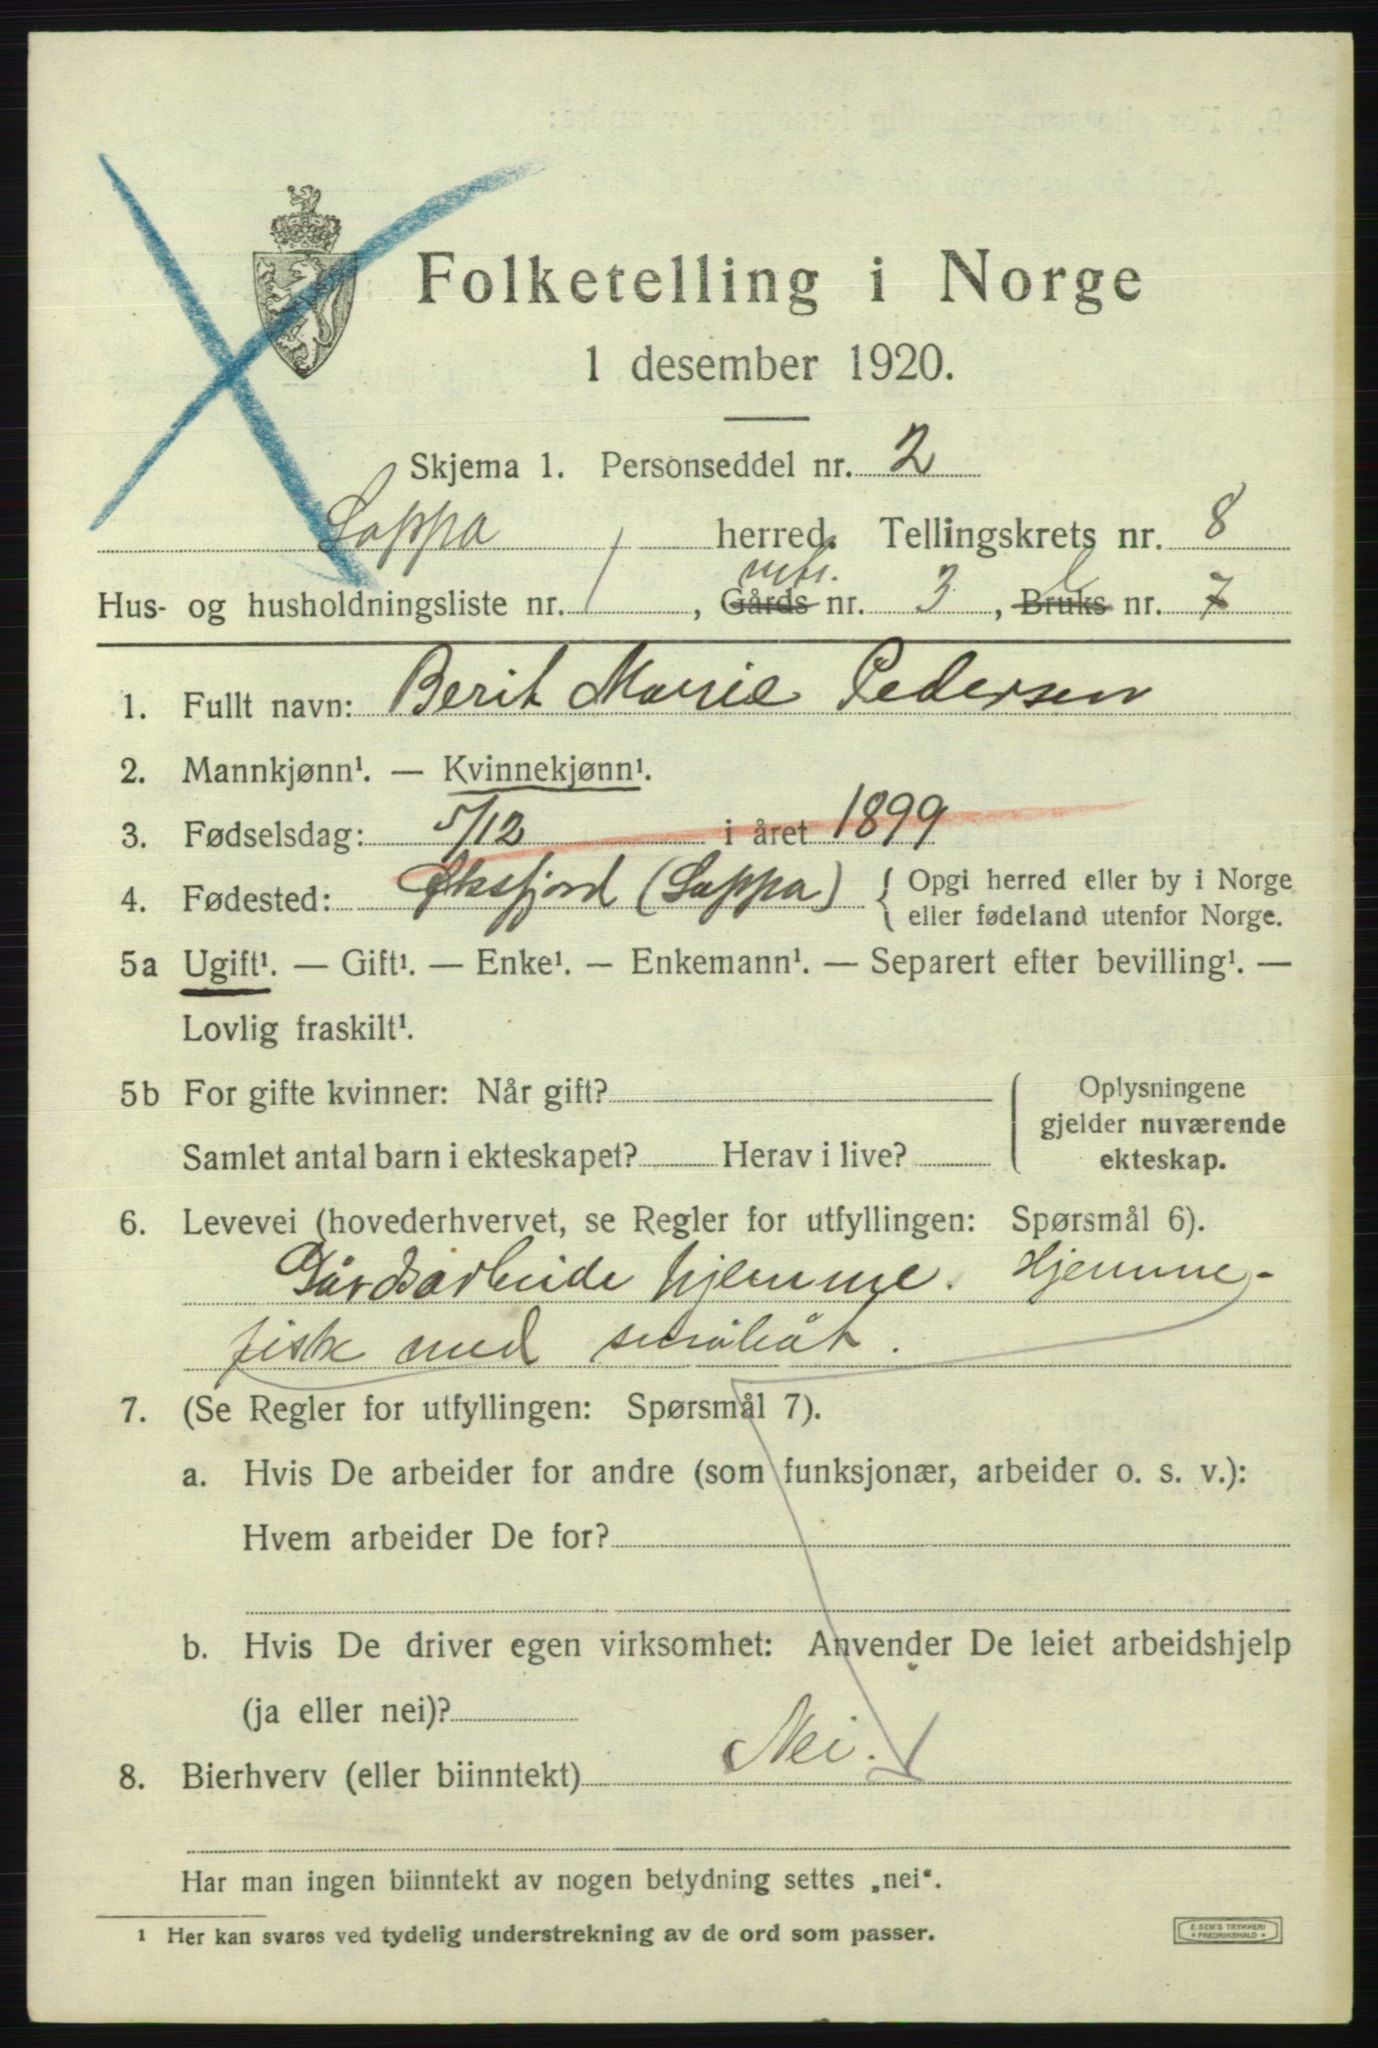 Folketelling i Norge
1 desember 1920.
Skjema 1. Personseddel nr. 2
Loppa herred. Tellingskrets nr. 8
Hus- og husholdningsliste nr. 1, Gårds mtr. nr. 3, Bruks L nr. 7
1. Fullt navn: Berit Marie Pedersen
2. Mannkjønn¹. — Kvinnekjønn¹.
3. Fødselsdag: 5/12 i året 1899
4. Fødested: Øksfjord (Loppa) { Opgi herred eller by i Norge
eller fødeland utenfor Norge.
5a Ugift¹. — Gift¹. — Enke¹. — Enkemann¹. — Separert efter bevilling¹. —
Lovlig fraskilt¹.
5b For gifte kvinner: Når gift? Oplysningene
gjelder nuværende
Samlet antal barn i ekteskapet? Herav i live? ekteskap.
6. Levevei (hovederhvervet, se Regler for utfyllingen: Spørsmål 6).
Gårdsarbeide hjemme. Hjemme-
fisk med småbåt.
7. (Se Regler for utfyllingen: Spørsmål 7).
a. Hvis De arbeider for andre (som funksjonær, arbeider o. s. v.):
Hvem arbeider De for?
b. Hvis De driver egen virksomhet: Anvender De leiet arbeidshjelp
(ja eller nei)?
8. Bierhverv (eller biinntekt) Nei.
Har man ingen biinntekt av nogen betydning settes „nei“.
¹ Her kan svares ved tydelig understrekning av de ord som passer.
E. SEM'S TRYKKERI
* FREDRIKSHALD *